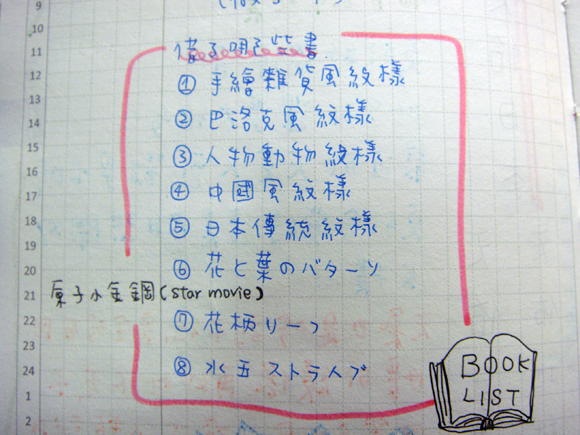 10
11 借了哪些書
12 ① 手繪雜貨風紋樣
13
14 ② 巴洛克風紋樣
15 ③ 人物動物紋樣
16
17 ④ 中國風紋樣
18 ⑤ 日本傳統紋樣
19
20 ⑥ 花と葉のバターン
21 原子小金鋼(star movie)
22 ⑦ 花柄リーフ
24 ⑧ 水玉ストライプ
1
2
BOOK
LIST